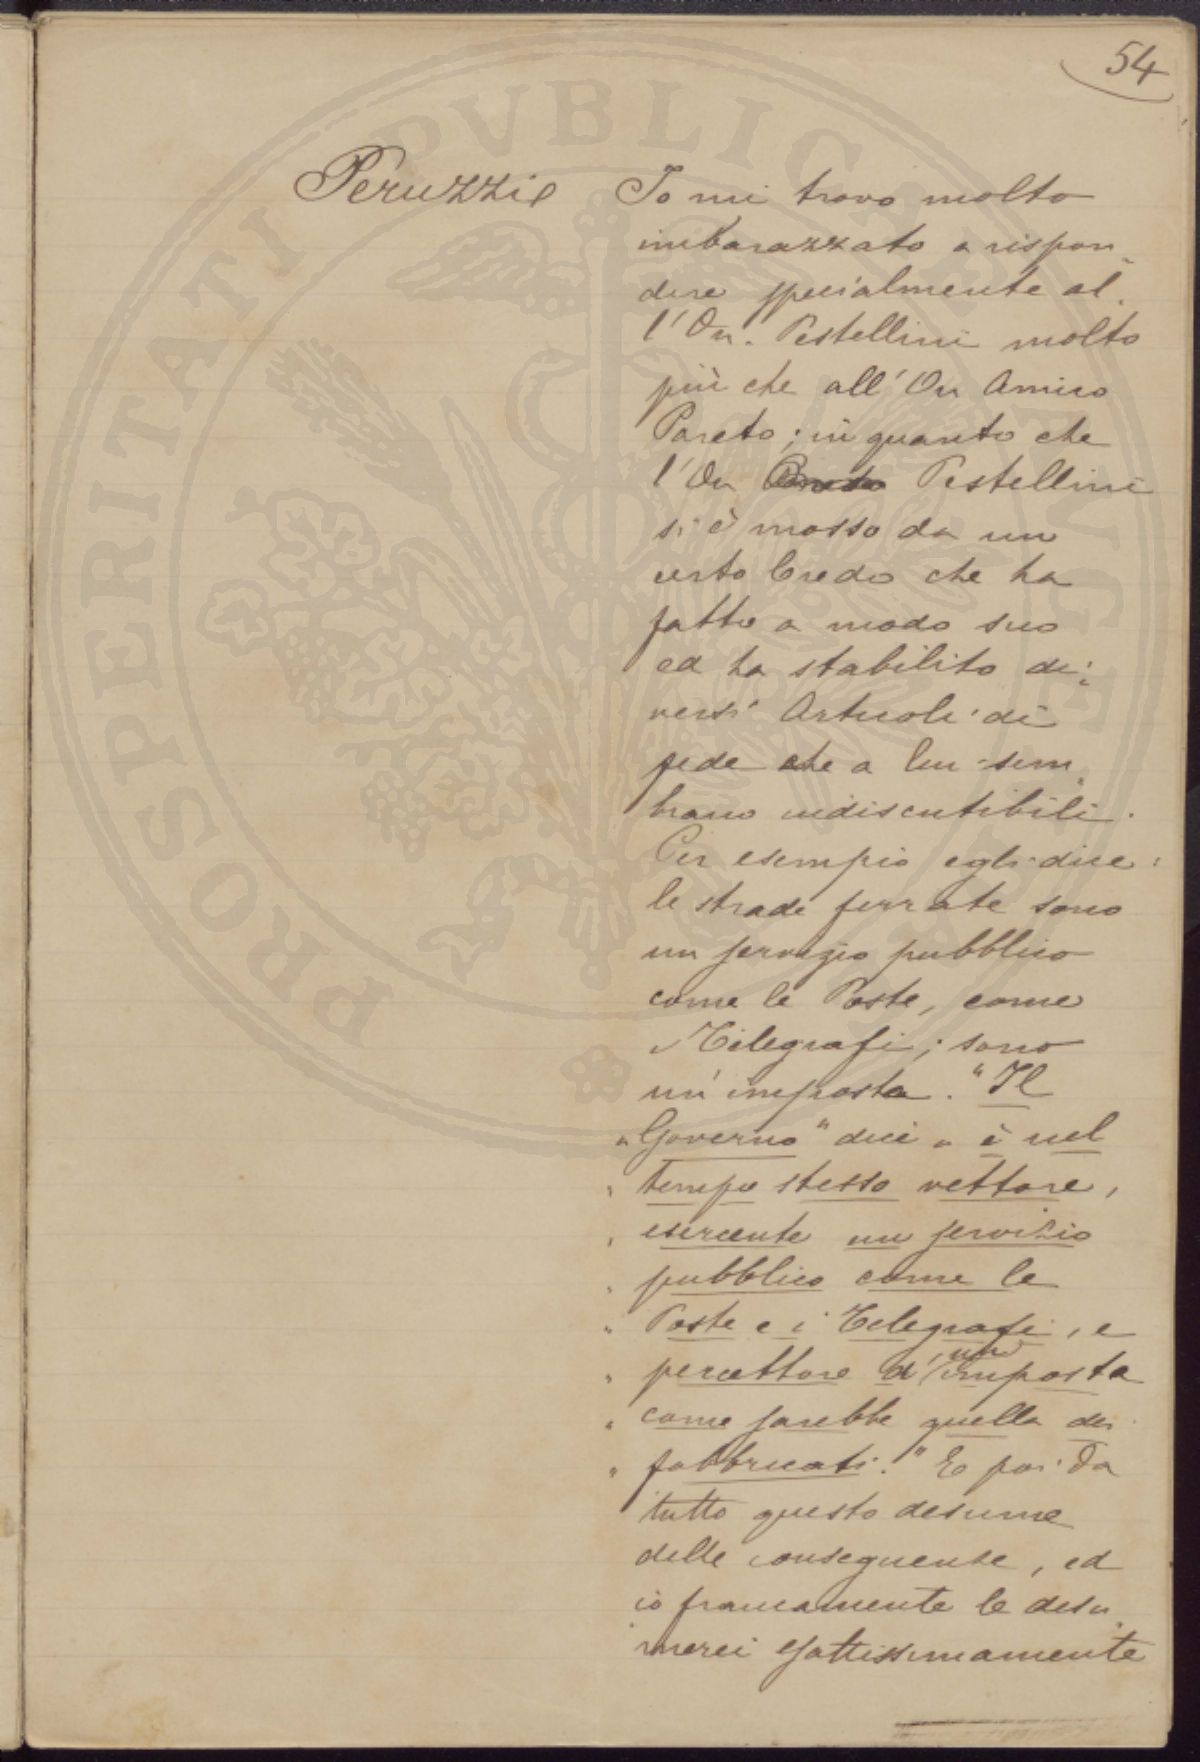 54
Peruzzi
Io mi trovo molto
imbarazzato a rispon-
dere specialmente al-
l'On. Pestellini molto
più che all'On Amico
Pareto; in quanto che
l'On Pareto Pestellini
si è mosso da un
certo Credo che ha
fatto a modo suo
ed ha stabilito di-
versi Articoli di
fede che a lui sem-
brano indiscutibili.
Per esempio egli dice:
le strade ferrate sono
un servizio pubblico
come le Poste, come
i Telegrafi; sono
un'imposta. "Il
"Governo" dice "è nel
" tempo stesso vettore,
" esercente un servizio
" pubblico come le
" Poste e i Telegrafi, e
" percettore d'un imposta
" come sarebbe quella dei
" fabbricati." E poi da
tutto questo desume
delle conseguenze, ed
io francamente le desu-
merei esattissimamente
PROSPERITATI PVBLICAE AVGENDAE